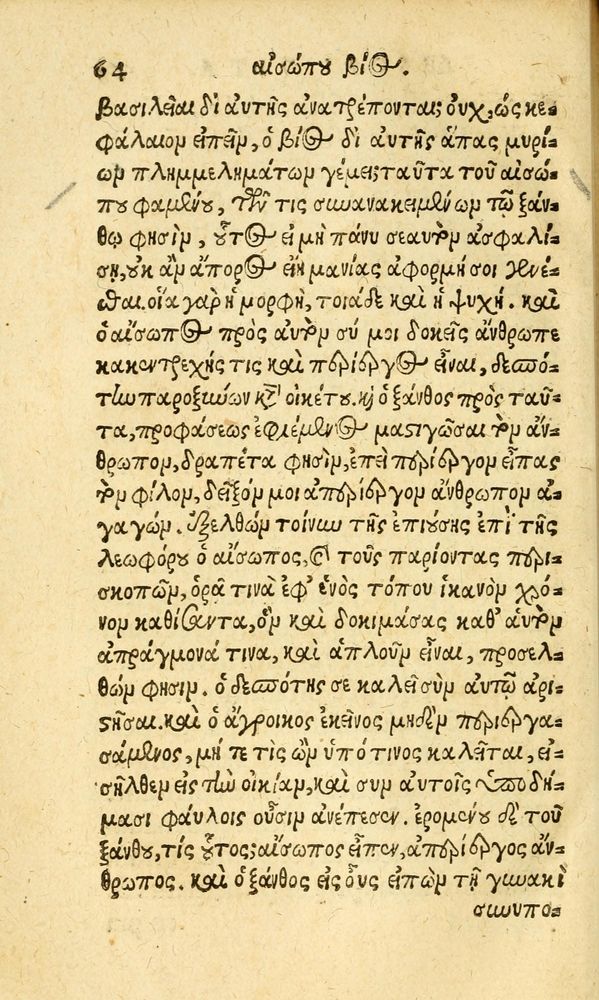 64 αἰσώπου βίος.
βασιλεῖαι δι αὐτῆς ἀνατρέπονται; οὐχ, ὡς κε-
φάλαιον εἰπεῖν, ὁ βίος δι αὐτῆς ἅπας μυρί-
ων πλημμελημάτων γέμει; ταῦτα τοῦ αἰσώ-
που φαμένου, τῶν τις συνανακειμένων τῷ ξάν-
θῳ φησὶν, οὗτος εἰ μὴ πάνυ σεαυτὸν ἀσφαλί-
σῃ, οὐκ ἂν ἄπορος εἴη μανίας ἀφορμή σοι γενέ-
σθαι. οἵα γὰρ ἡ μορφὴ, τοιάδε καὶ ἡ ψυχή. καὶ
ὁ αἴσωπος πρὸς αὐτὸν σύ μοι δοκεῖς ἄνθρωπε
κακεντρεχής τις καὶ περίεργος εἶναι, δεσπό-
την παροξύνων κατ οἰκέτου. καὶ ὁ ξάνθος πρὸς ταῦ-
τα, προφάσεως ἐφιέμενος μαστιγῶσαι τὸν ἄν-
θρωπον, δραπέτα φησὶν, ἐπεὶ περίεργον εἶπας
τὸν φίλον, δεῖξόν μοι ἀπερίεργον ἄνθρωπον ἀ-
γαγών. ἐξελθὼν τοίνυν τῆς ἐπιούσης ἐπὶ τῆς
λεωφόρου ὁ αἴσωπος, καὶ τοὺς παριόντας περι-
σκοπῶν, ὁρᾷ τινὰ ἐφ' ἑνὸς τόπου ἱκανὸν χρό-
νον καθίσαντα, ὃν καὶ δοκιμάσας καθ' αὑτὸν
ἀπράγμονά τινα, καὶ ἁπλοῦν εἶναι, προσελ-
θών φησιν. ὁ δεσπότης σε καλεῖ σὺν αὐτῷ ἀρι-
στῆσαι. καὶ ὁ ἄγροικος ἐκεῖνος μηδὲν περιεργα-
σάμενος, μή τε τίς ὢν ὑπό τινος καλεῖται, εἰ-
σῆλθεν εἰς τὴν οἰκίαν, καὶ συν αὐτοῖς ὑποδή-
μασι φαύλοις οὖσιν ἀνέπεσεν. ἐρομένου δὲ τοῦ
ξάνθου, τίς οὗτος; αἴσωπος εἶπεν, ἀπερίεργος ἄν-
θρωπος. καὶ ὁ ξάνθος εἰς οὖς εἰπὼν τῇ γυναικὶ
συνυπο-